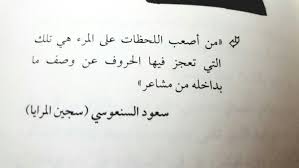 «من أصعب اللحظات على المرء هي تلك
التي تعجز فيها الحروف عن وصف ما
بداخله من مشاعر»
سعود السنعوسي (سجين المرايا)